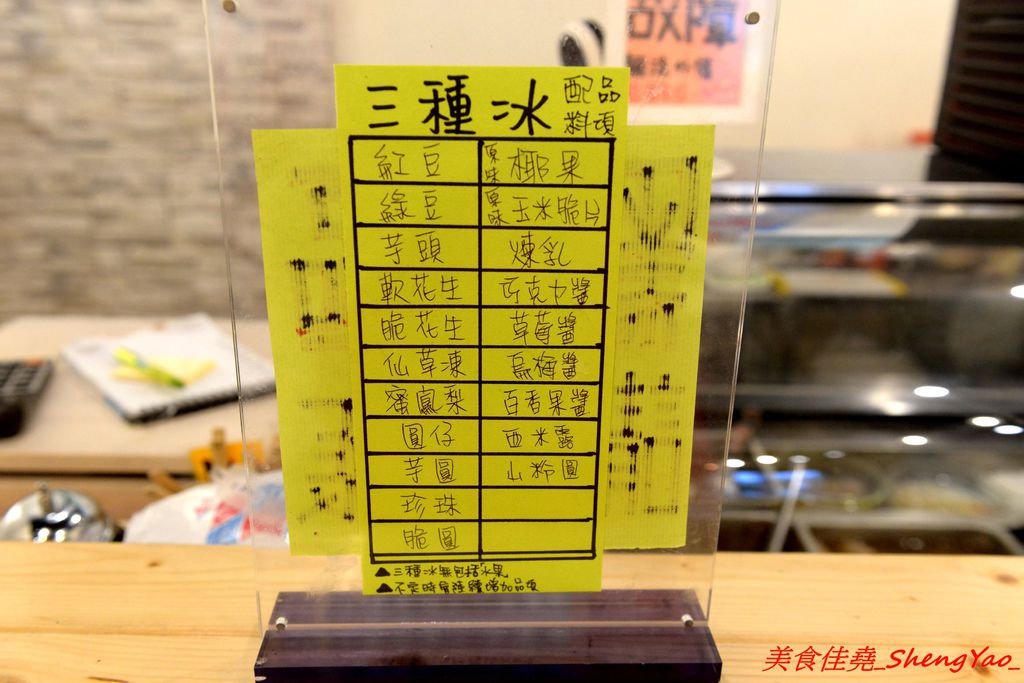 故障
三種冰 配料品項
紅豆 原味椰果
綠豆 原味玉米脆片
芋頭 煉乳
軟花生 巧克力醬
脆花生 草莓醬
仙草凍 烏梅醬
蜜鳳梨 百香果醬
圓仔 西米露
芋圓 山粉圓
珍珠
脆圓
▲三種冰無包括水果
▲不定時會陸續增加品項
美食佳堯_ShengYao_